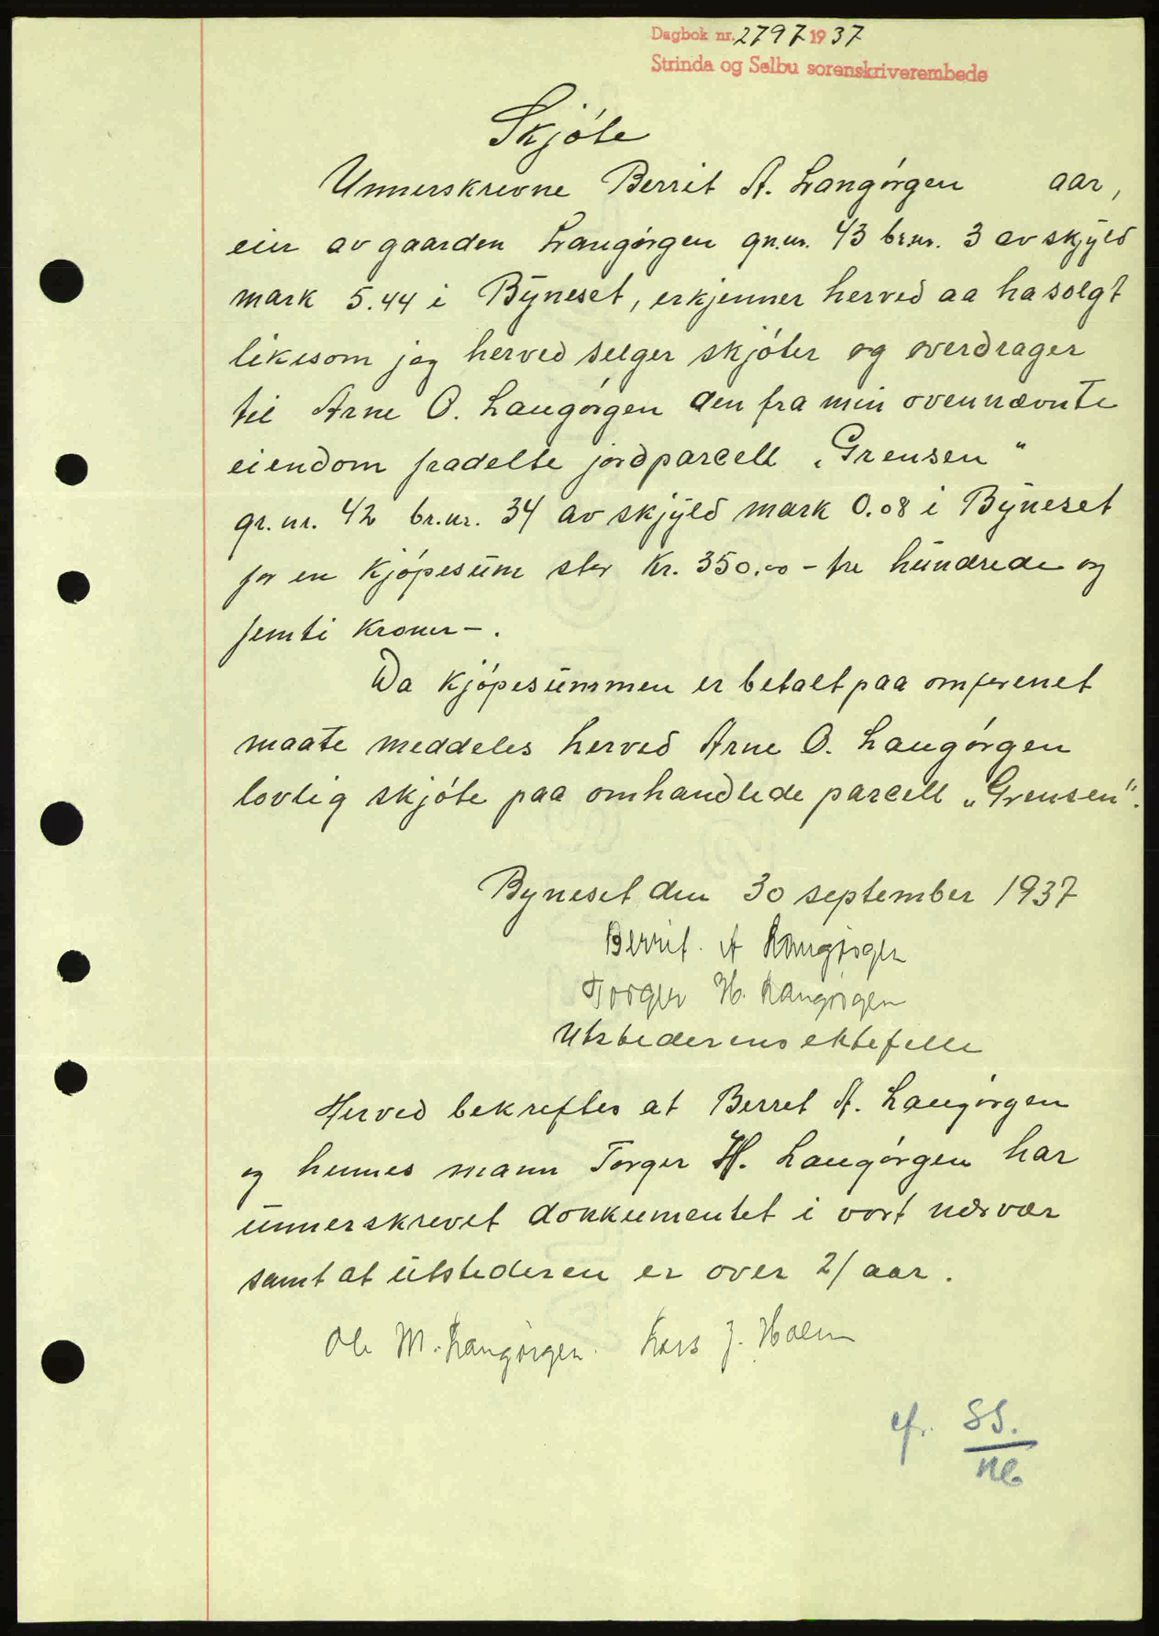 Dagbok nr. 2797 1937
Strinda og Selbu sorenskriverembede
Skjøte
Unnerskrevne Berrit A. Langørgen aar,
eier av gaarden Langørgen gr.nr. 43 br.nr. 3 av skjyld
mark 5.44 i Byneset, erkjenner herved aa ha solgt
likesom jeg herved selger skjøter og overdrager
til Arne O. Langørgen den fra min ovennævnte
eiendom fradelte jordparcell „Grensen"
gr. nr. 42 br.nr. 34 av skjyld mark 0.08 i Byneset
for en kjøpesum stor kr. 350.00 - tre hundrede og
femti kroner -.
Da kjøpesummen er betalt paa omforenet
maate meddeles herved Arne O. Langørgen
lovlig skjøte paa omhandlede parcell „Grensen".
Byneset den 30 september 1937
Berrit. A Langørgen
Torger H. Langørgen
Utstederens ektefelle
Herved bekreftes at Berret A. Langørgen
og hennes mann Torger H. Langørgen har
unnerskrevet dokkumentet i vort nærvær
samt at utstederen er over 21 aar.
Ole M. Langørgen. Lars J. Holm
cf. SS.